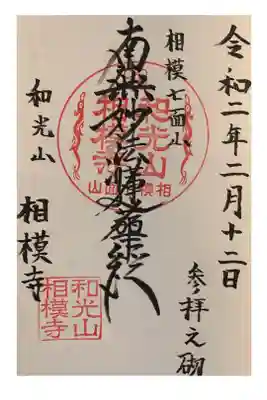 令和二年二月十二日
参拝之砌
相模七面山
南無妙法蓮華経
和光山
相模寺
和光山
相模寺
相模七面山
和光山
相模寺